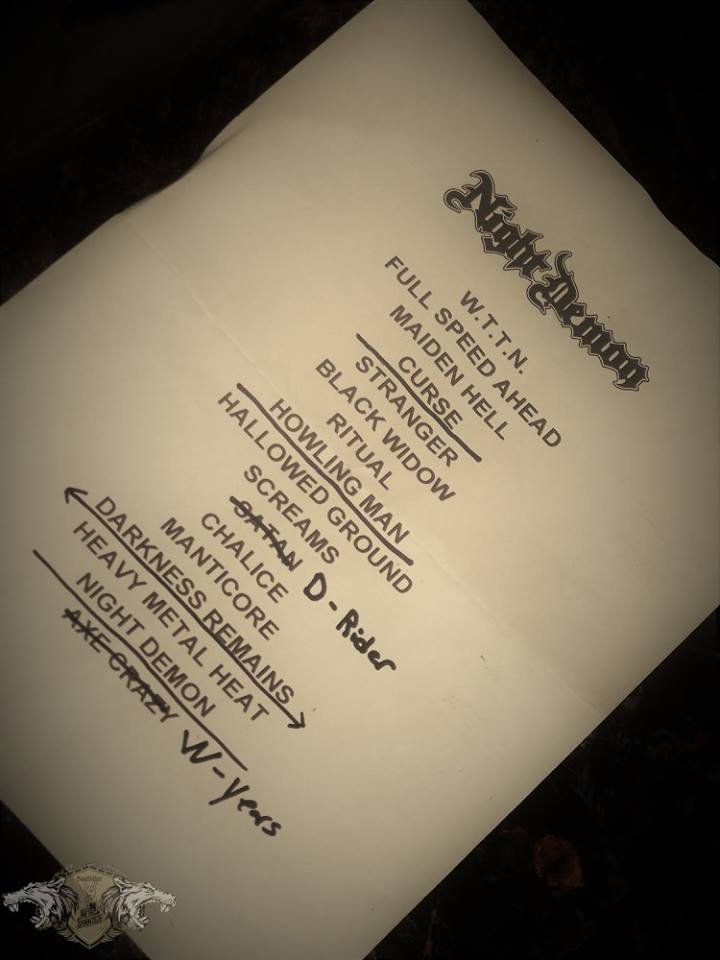 Night Demon
W.T.T.N.
FULL SPEED AHEAD
MAIDEN HELL
CURSE
STRANGER
BLACK WIDOW
RITUAL
HOWLING MAN
HALLOWED GROUND
SCREAMS
SATAN D-Rider
CHALICE
MANTICORE
DARKNESS REMAINS
HEAVY METAL HEAT
NIGHT DEMON
AXE CRAZY W-years